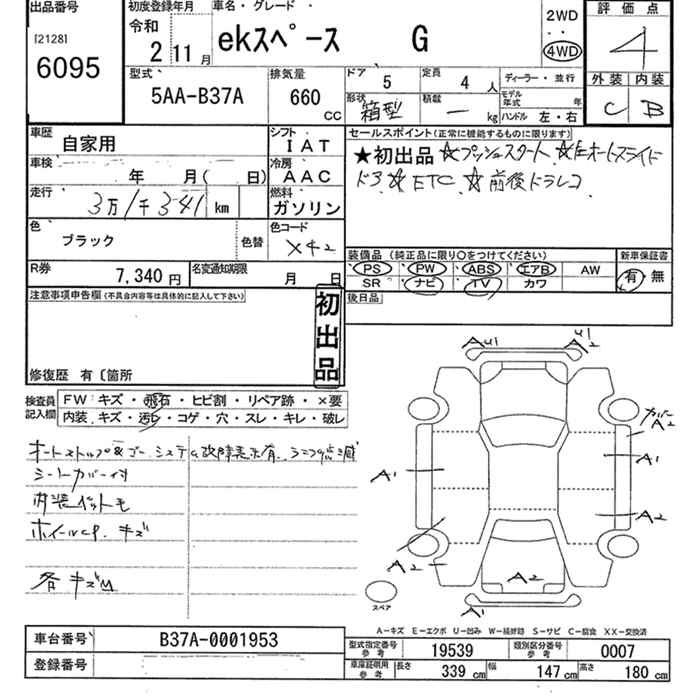 出品番号
[2128]
6095
初度登録年月
令和
2 11 月
車名・グレード・
ekスペース G
2WD
4WD
評価点
4
外装 内装
C B
型式
5AA-B37A
排気量
660
CC
ドア
5
定員
4 人
形状
箱型
積載
ー kg
ディーラー・並行
モデル年式 年
ハンドル 左・右
車歴
自家用
シフト
IAT
セールスポイント(正常に機能するものに限ります)
★初出品 ☆プッシュスタート ☆左オートスライド
ドア ☆ETC ☆前後ドラレコ
車検
年 月( 日)
冷房
AAC
走行
3万1千341 km
燃料
ガソリン
色
ブラック
色替
色コード
X42
装備品(純正品に限り〇をつけてください)
新車保証書
PS PW ABS エアB AW
SR ナビ TV カワ
有・無
R券
7,340 円
名変通知期限
月 日
後日品
注意事項申告欄(不具合内容等は具体的に記入して下さい)
初出品
修復歴 有〔箇所
検査員記入欄
FW:キズ・飛石・ヒビ割・リペア跡・×要
内装.キズ・汚レ・コゲ・穴・スレ・キレ・破レ
オートストップ&ゴーシステム故障表示有
シートカバー付
ホイールCP. キズ
各キズ
AU1
U1
A2
カバー
A2
A1
A1
A2
A2
A2
スペア
A―キズ E―エクボ U―凹み W―補修跡 S―サビ C―腐食 XX―交換済
車台番号
B37A-0001953
登録番号
型式指定番号
参考
19539
類別区分番号
参考
0007
車庫証明用
参考
長さ
339 cm
幅
147 cm
高さ
180 cm